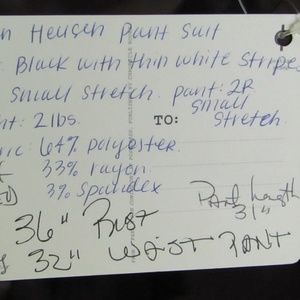 n Heusen Pant Suit
: Black with thin white stripes
Small Stretch. pant: 2R
Small
Stretch.
TO:
nt: 2 lbs.
ric: 64% polyester
33% rayon
3% Spandex
Pant length
31"
36" Bust
32" WAIST PANT